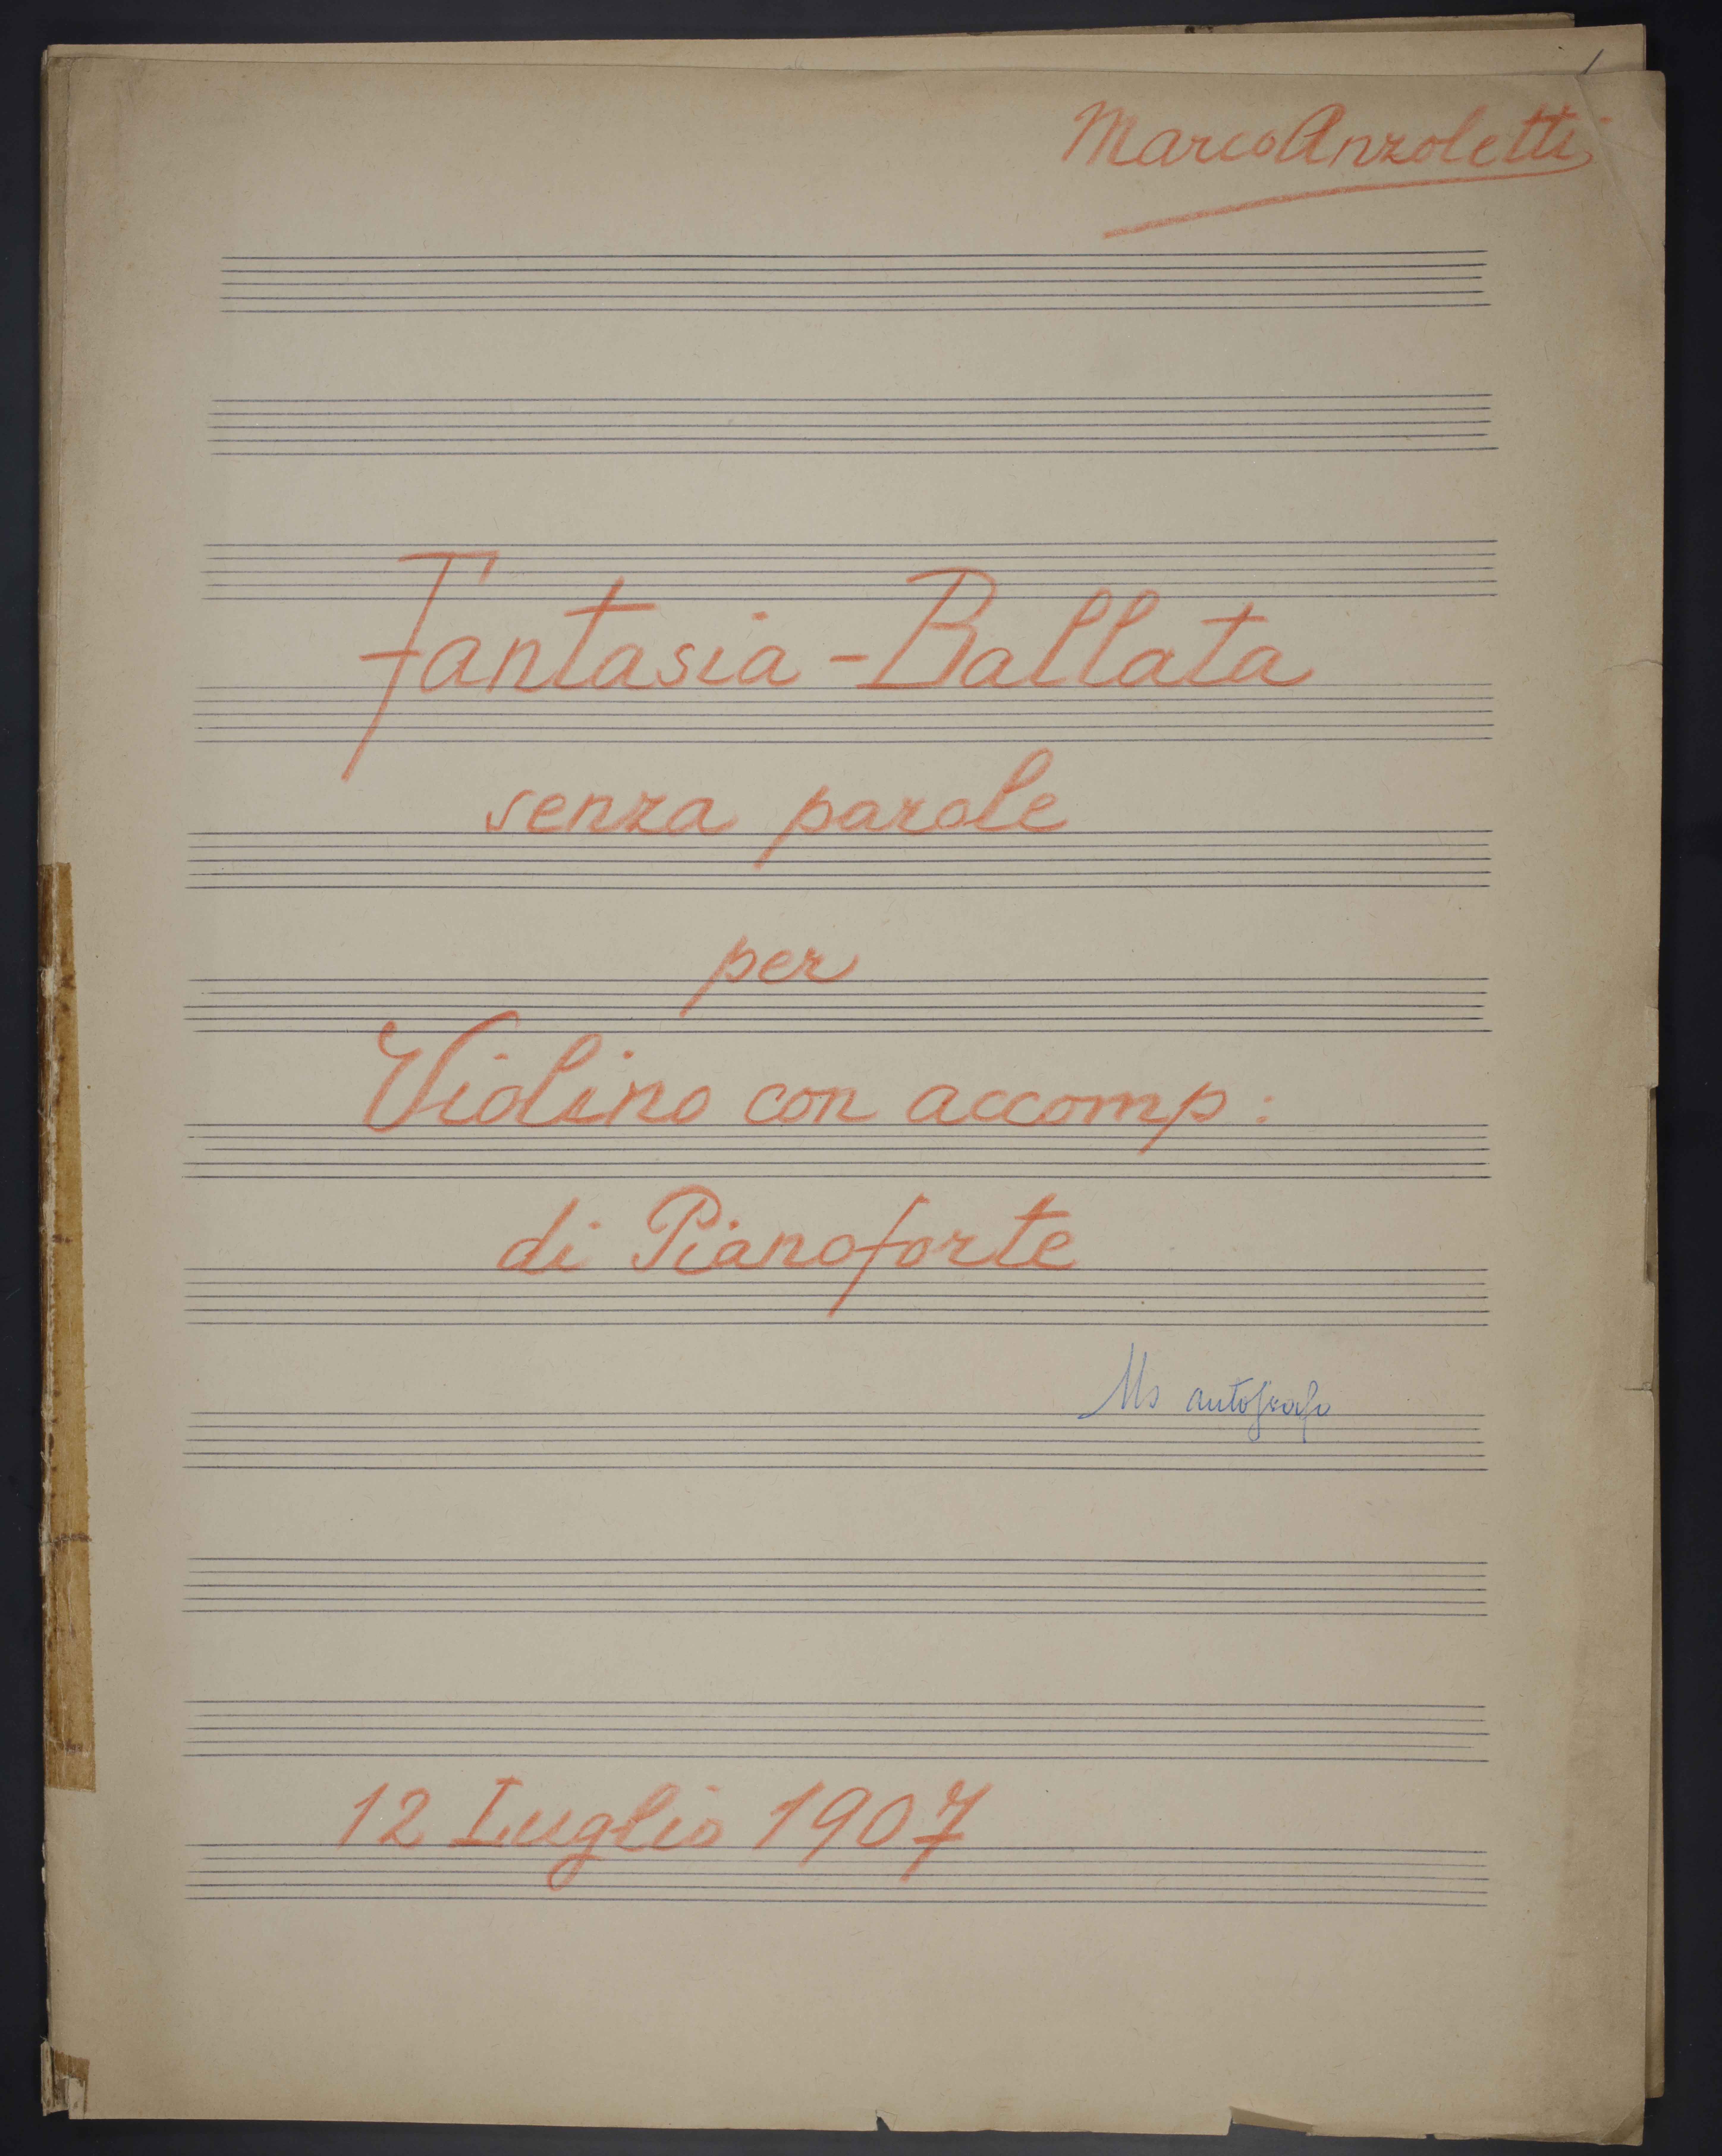 Marco Anzoletti
Fantasia - Ballata
senza parole
per
Violino con accomp:
di Pianoforte
Ms autografo
12 Luglio 1907